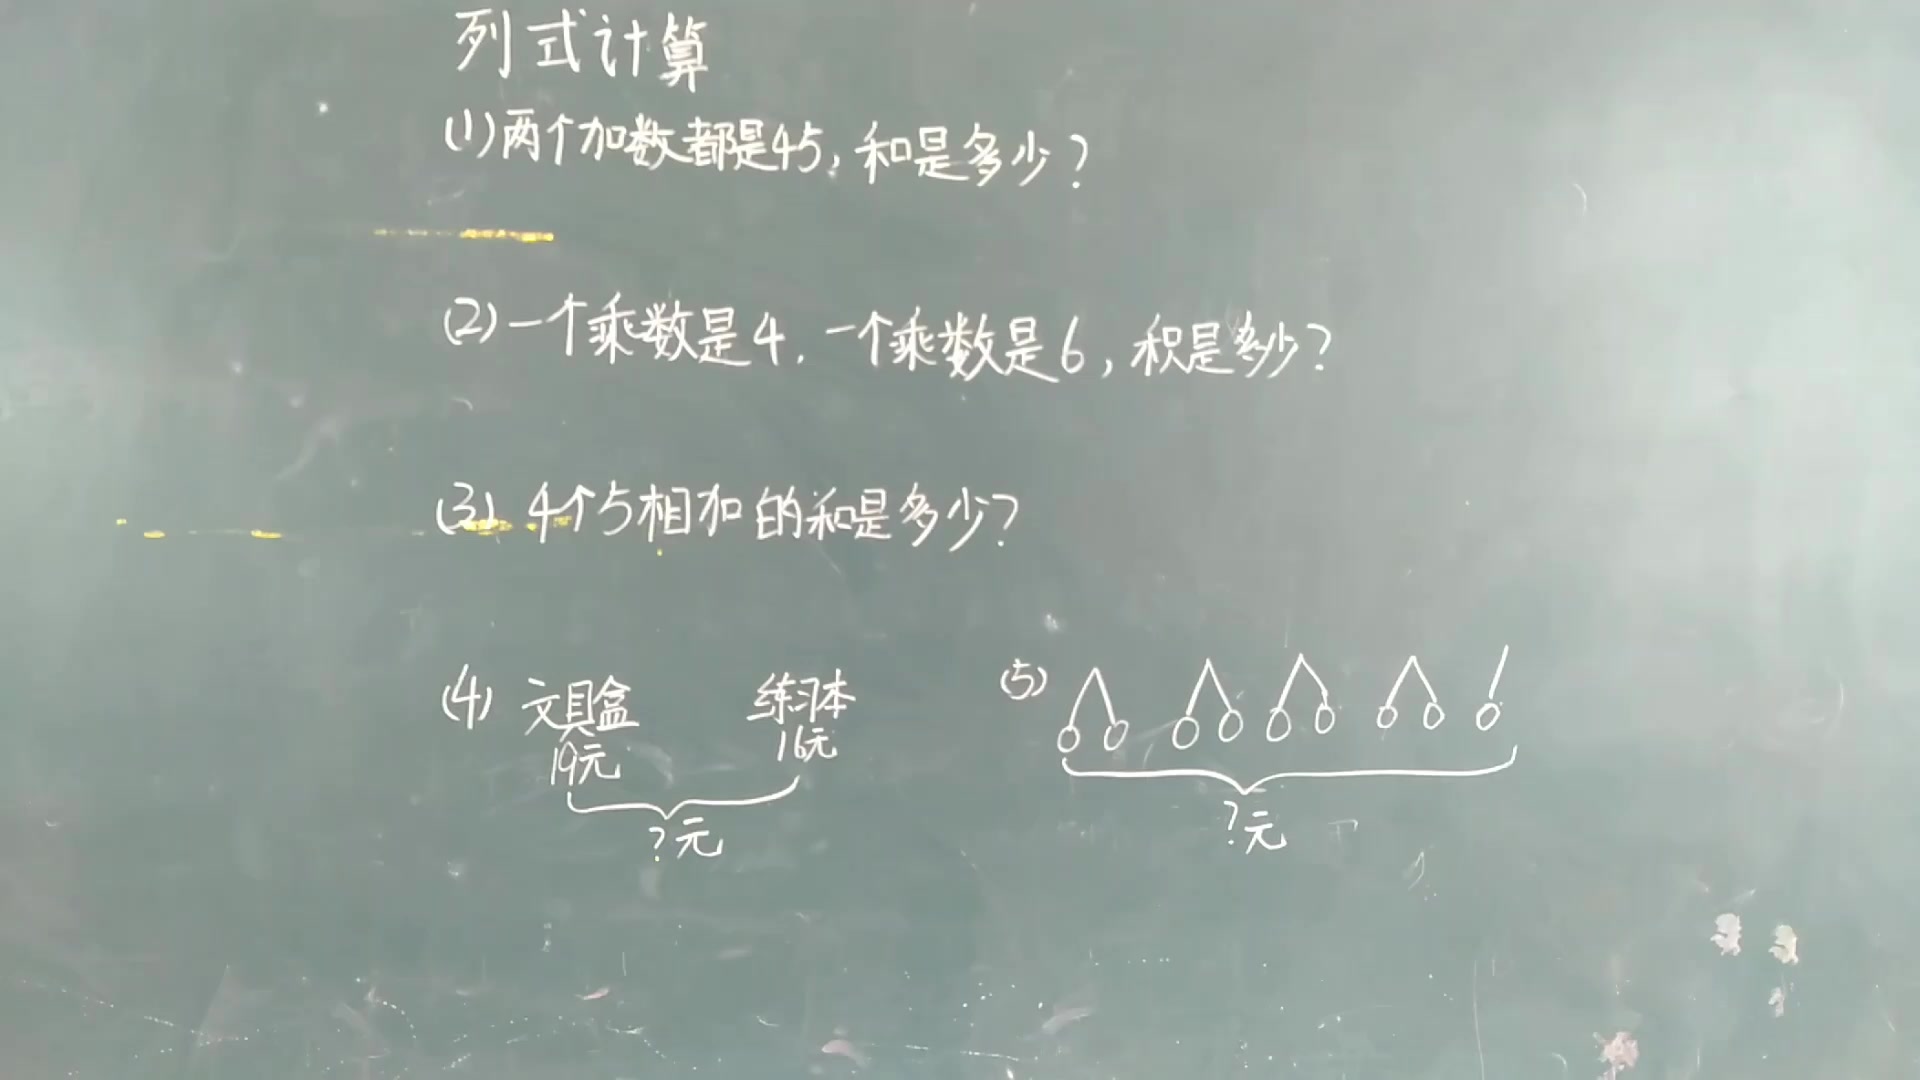 列式计算
(1)两个加数都是45,和是多少?
(2)一个乘数是4,一个乘数是6,积是多少?
(3) 4个5相加的和是多少?
(4) 文具盒 练习本
19元 16元
?元
(5)
?元